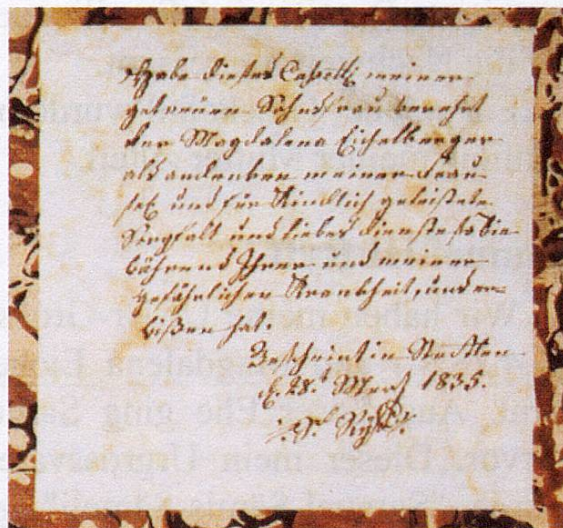 Habe dieses Cassettli meiner
getreuen Sohnsfrau verehrt
der Magdalena Eichelberger
als andenken meiner Frau
sel und für Kindlich geleistete
Sorgfalt und liebes dienste so Sie
während Ihrer und meiner
gefährlichen Krankheit, uns er-
wißen hat.
Bescheint in Stetten
d. 28.t Merz 1835.